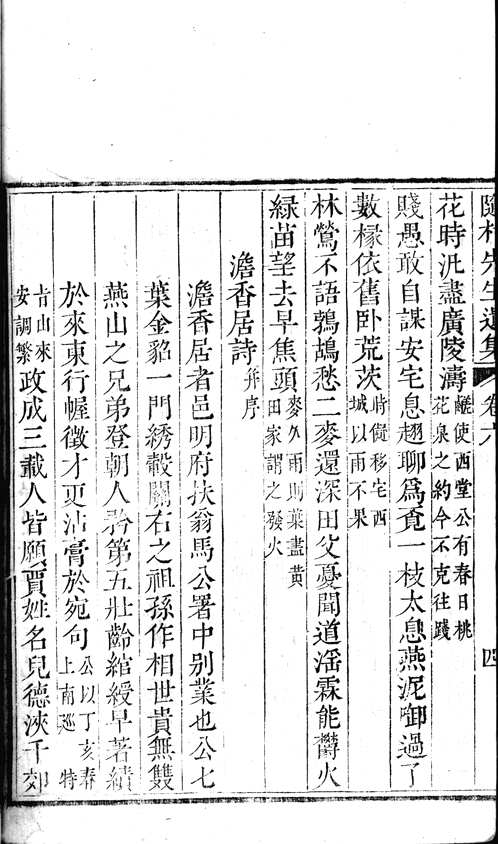 隨村先生遺集 卷六 四
花時汎盡廣陵濤 鹺使西堂公有春日桃
花泉之約今不克往踐
賤愚敢自謀安宅息趐聊爲覔一枝太息燕泥啣過了
數椽依舊卧荒茨 時儗移宅西
城以雨不果
林鶯不語鷓鴣愁二麥還深田父憂聞道滛霖能鬱火
緑苗望去早焦頭 麥久雨則葉盡黄
田家謂之發火
澹香居詩 幷序
澹香居者邑明府扶翁馬公署中別業也公七
葉金貂一門綉轂關右之祖孫作相世貴無雙
燕山之兄弟登朝人矜第五壯齡綰綬早著績
於來東行幄徵才更沾膏於宛句 公以丁亥春
上南廵特
旨由來
安調繁 政成三載人皆願賈姓名兒德浹千郊